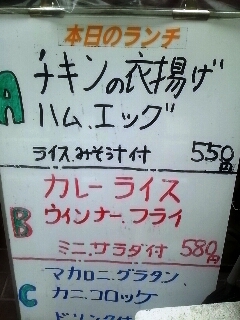 本日のランチ
A チキンの衣揚げ
ハム.エッグ
ライスみそ汁付 550円
B カレーライス
ウィンナー.フライ
ミニ.サラダ付 580円
C マカロニ.グラタン
カニ.コロッケ
ドリンク付